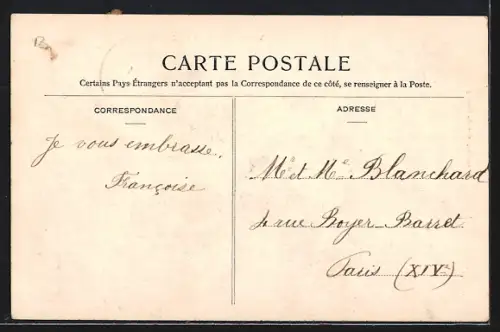 CARTE POSTALE
Certains Pays Étrangers n'acceptant pas la Correspondance de ce côté, se renseigner à la Poste.
CORRESPONDANCE
Je vous embrasse.
Françoise
ADRESSE
Mr et Me Blanchard
4 rue Boyer-Barret
Paris (XIVe)